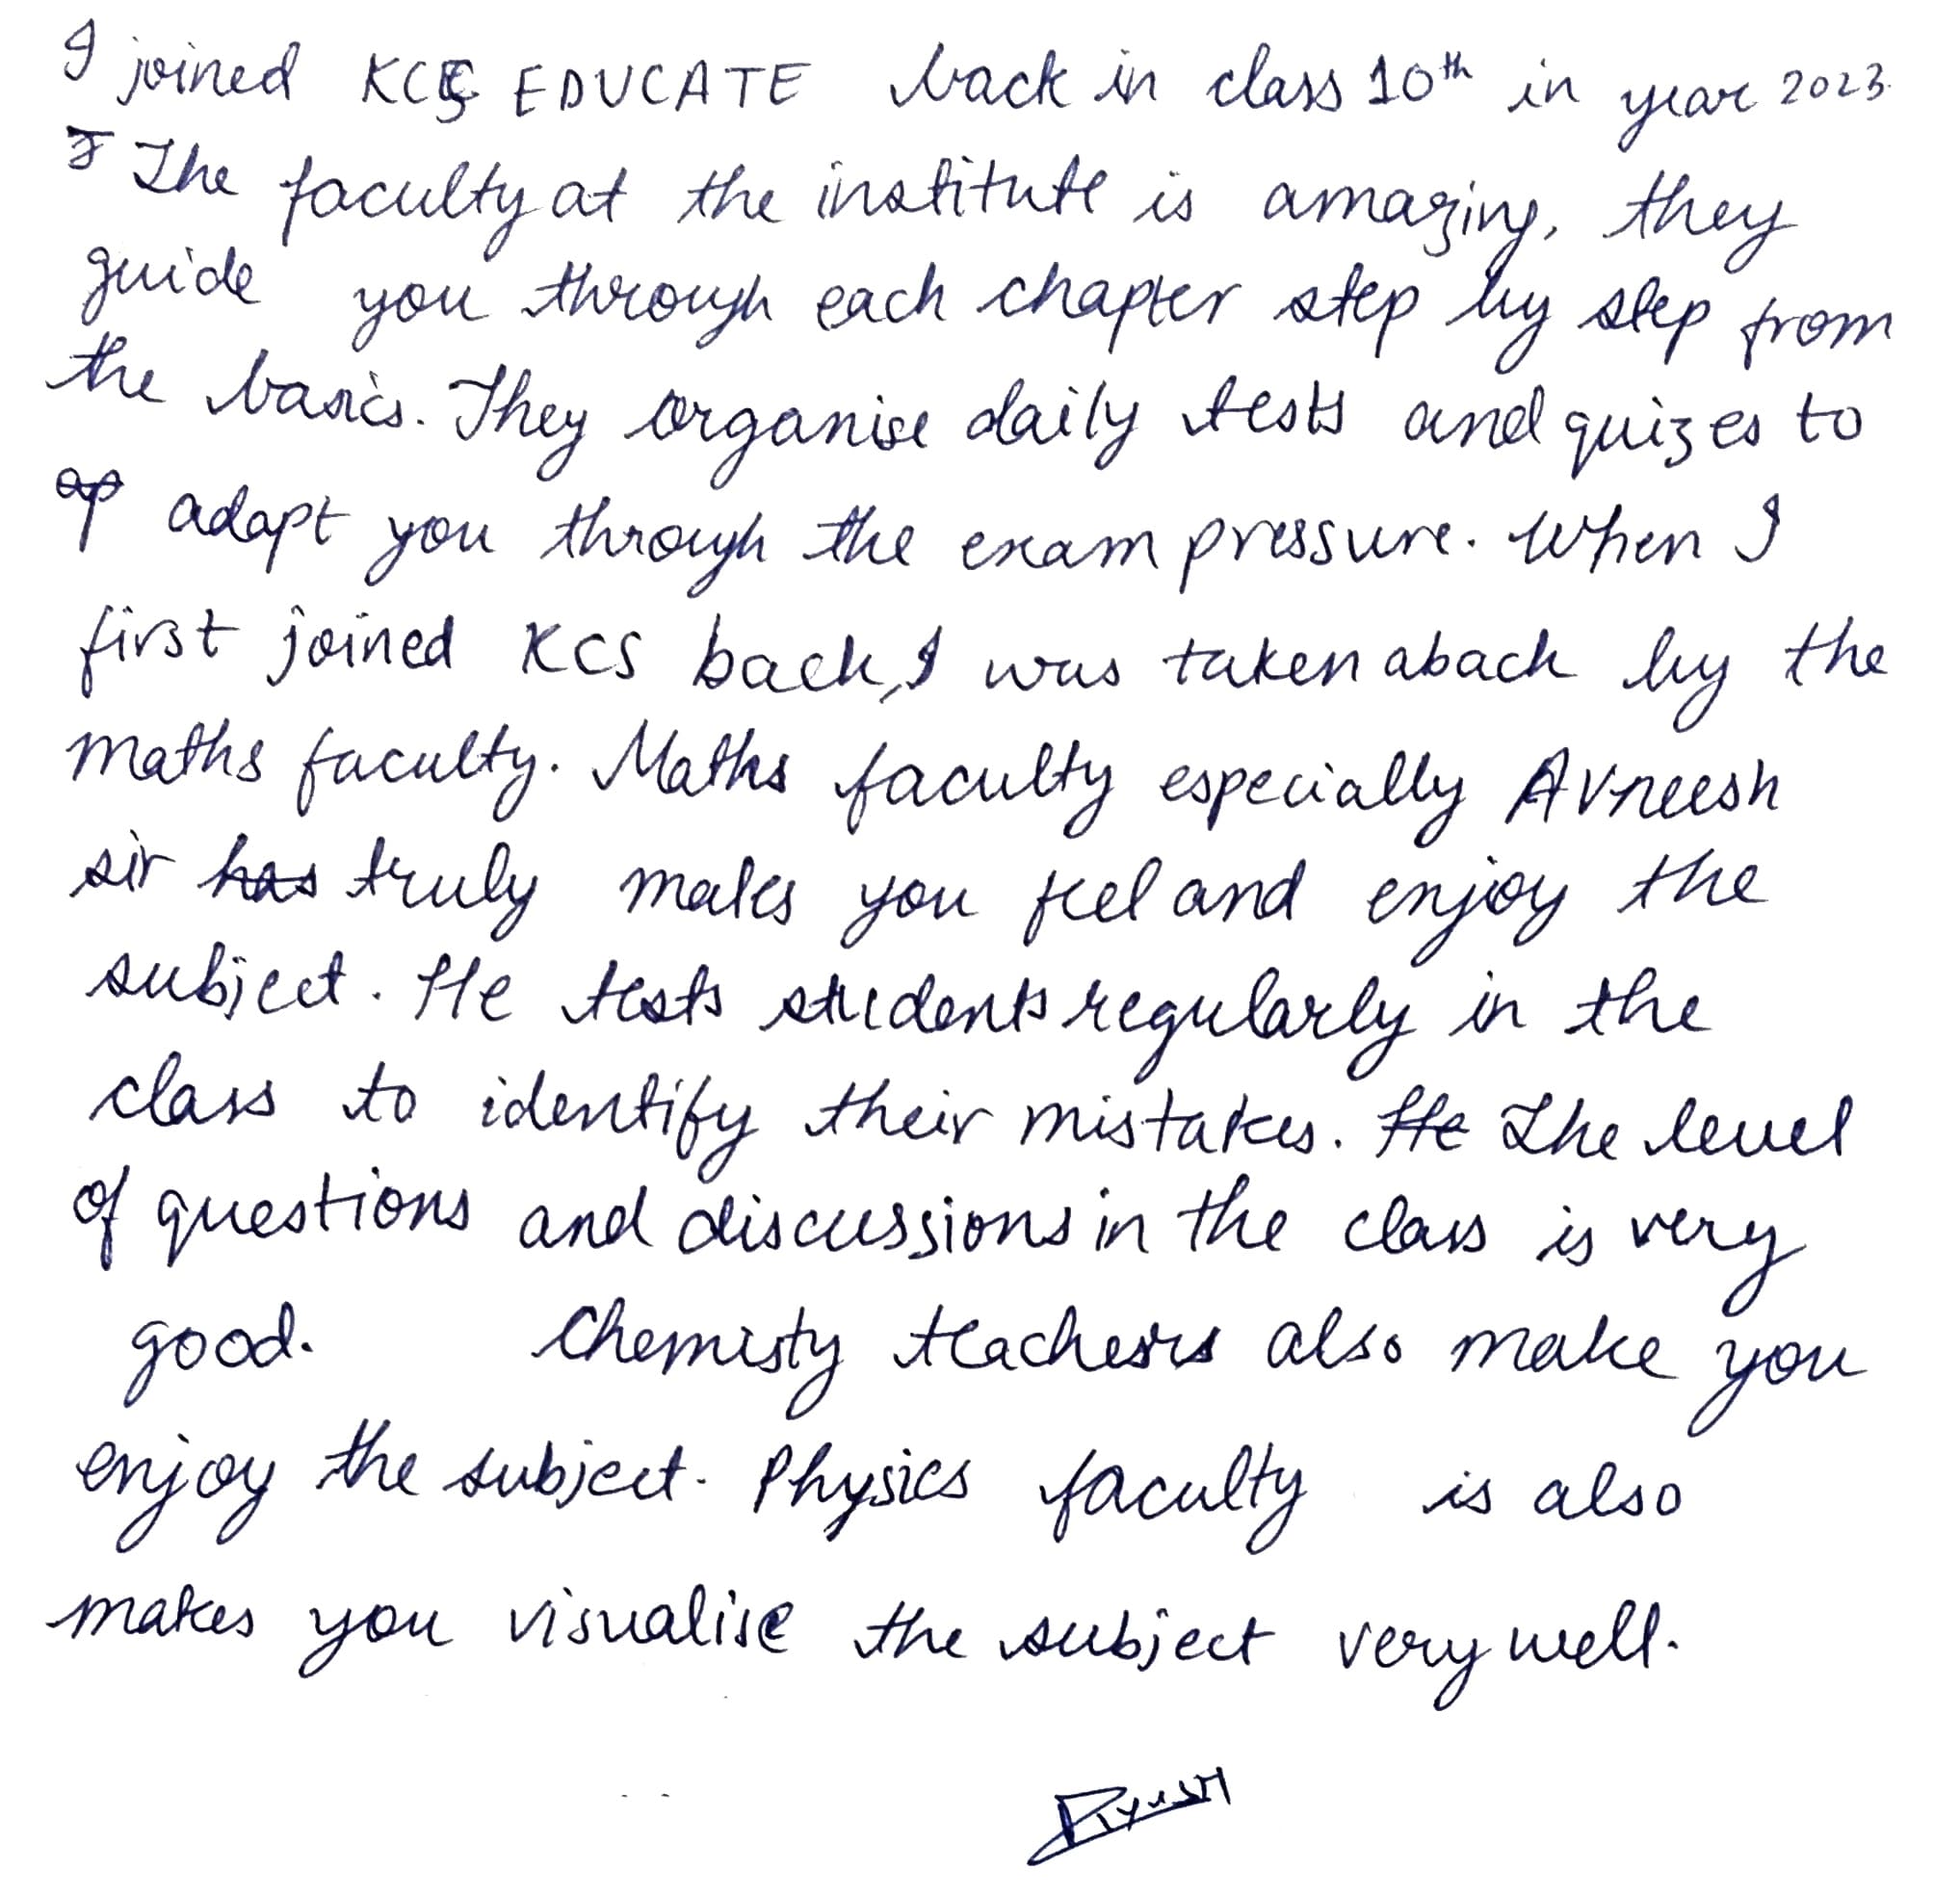 I joined KCS EDUCATE back in class 10th in year 2023.
The faculty at the institute is amazing, they
guide you through each chapter step by step from
the basics. They organise daily tests and quizes to
adapt you through the exam pressure. When I
first joined KCS back, I was taken aback by the
maths faculty. Maths faculty especially Avneesh
sir has truly makes you feel and enjoy the
subject. He tests students regularly in the
class to identify their mistakes. He The level
of questions and discussions in the class is very
good. Chemisty teachers also make you
enjoy the subject. Physics faculty is also
makes you visualise the subject very well.
Piyush